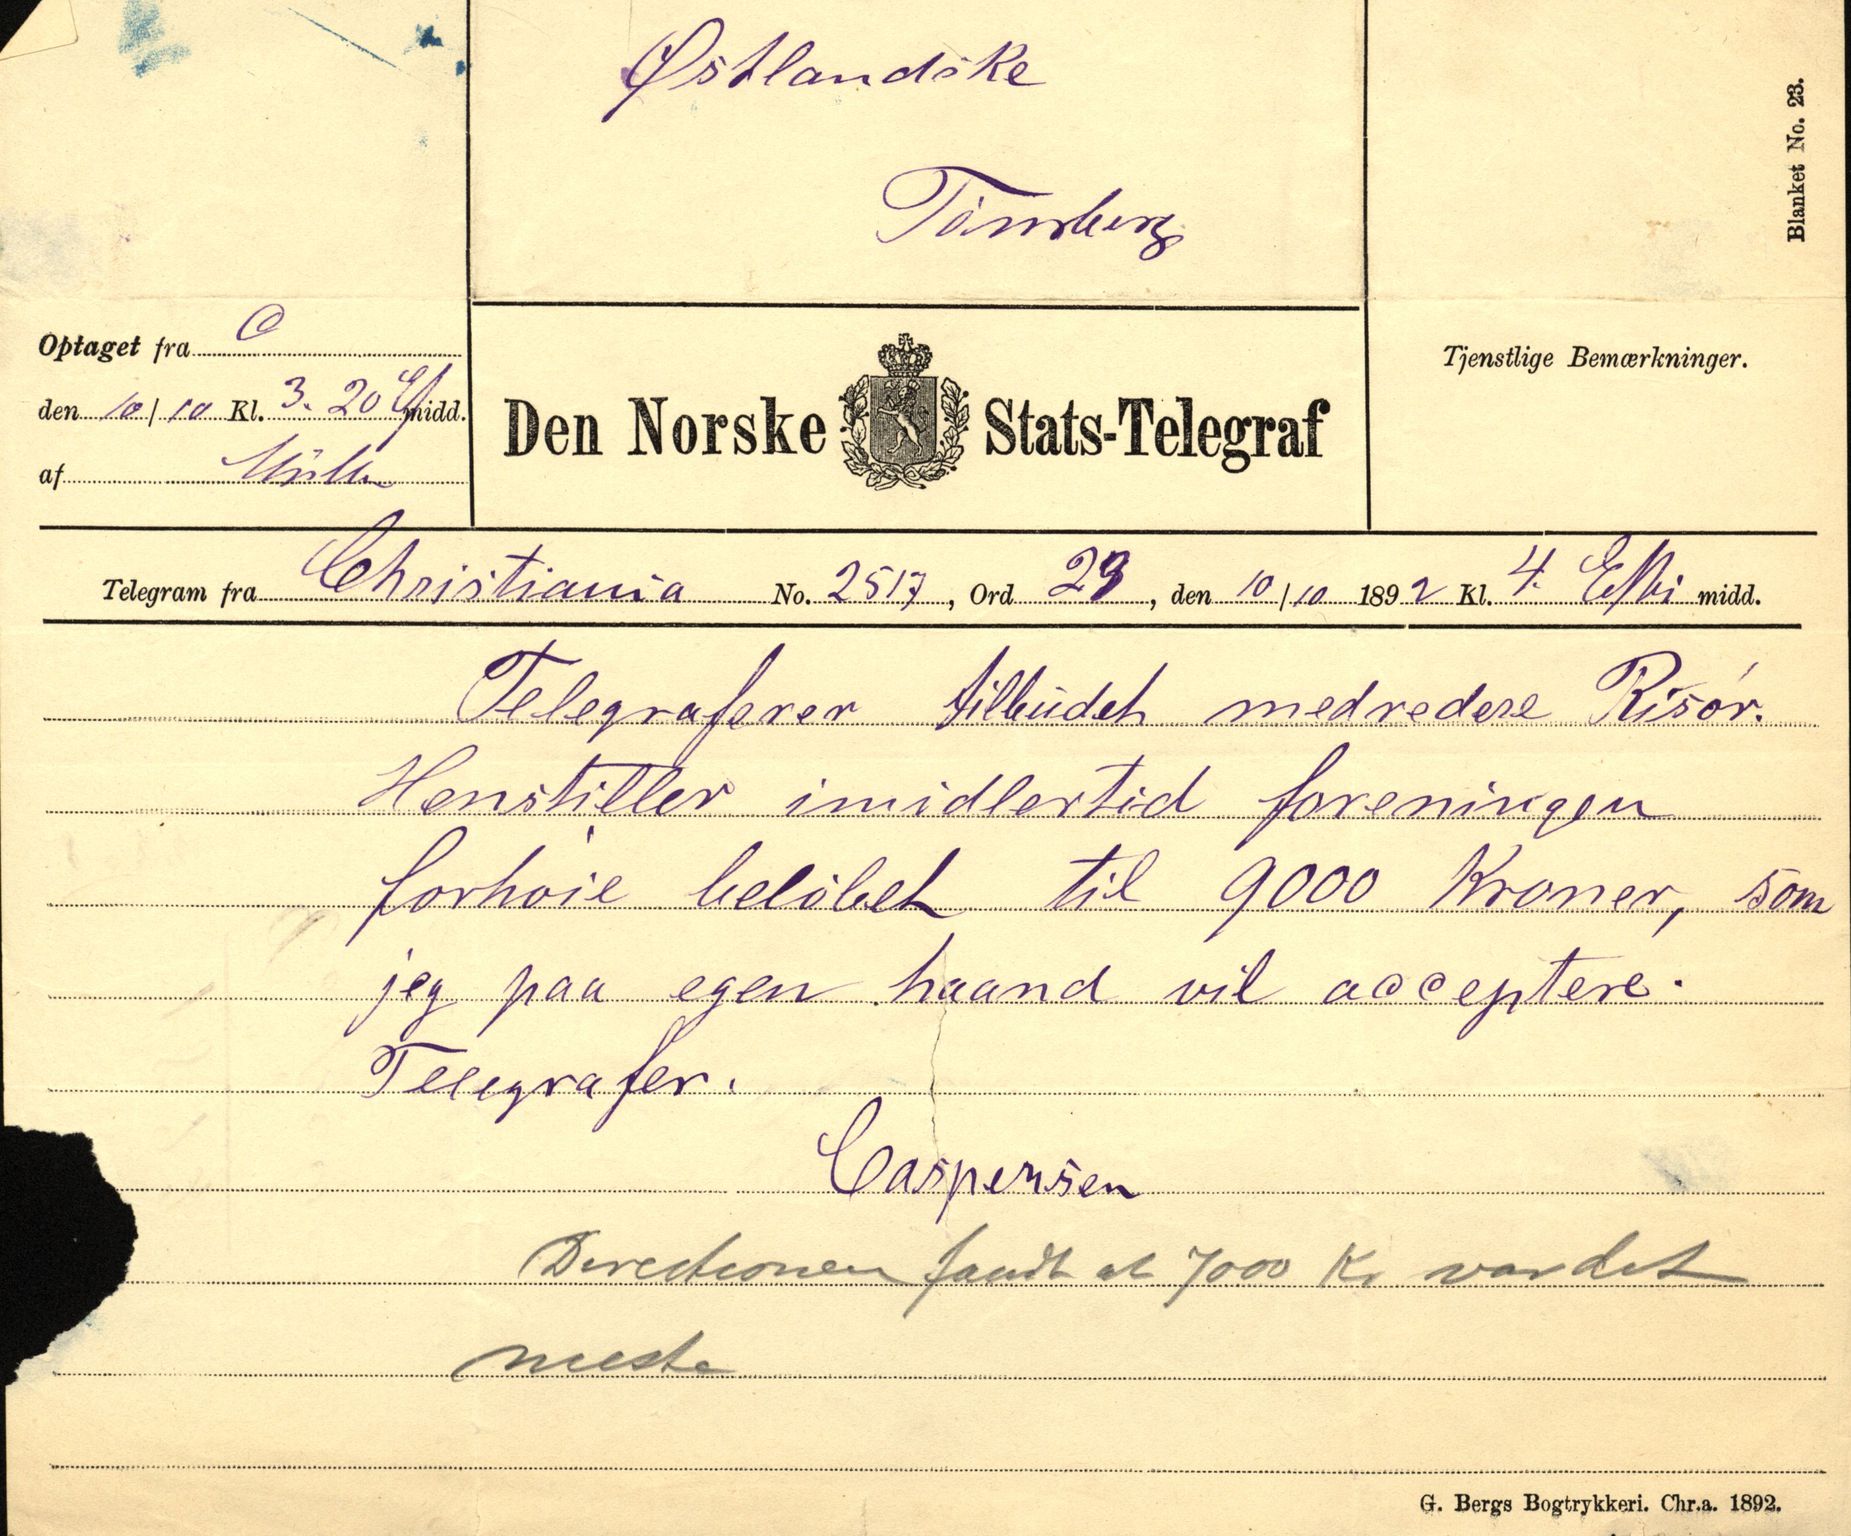 Østlandske
Tønsberg
Blanket No. 23.
Optaget fra C
den 10/10 Kl. 3.20 Ef midd.
af
Den Norske Stats-Telegraf
Tjenstlige Bemærkninger.
Telegram fra Christiania No. 2517, Ord 29, den 10/10 1892 Kl. 4. Efti midd.
Telegraferer tilbudet medredere Risør.
Henstiller imidlertid foreningen
forhøie beløbet til 9000 Kroner, som
jeg paa egen haand vil acceptere.
Telegrafer.
Caspersen
Directionen fandt at 7000 Kr var det
meste
G. Bergs Bogtrykkeri. Chr.a. 1892.